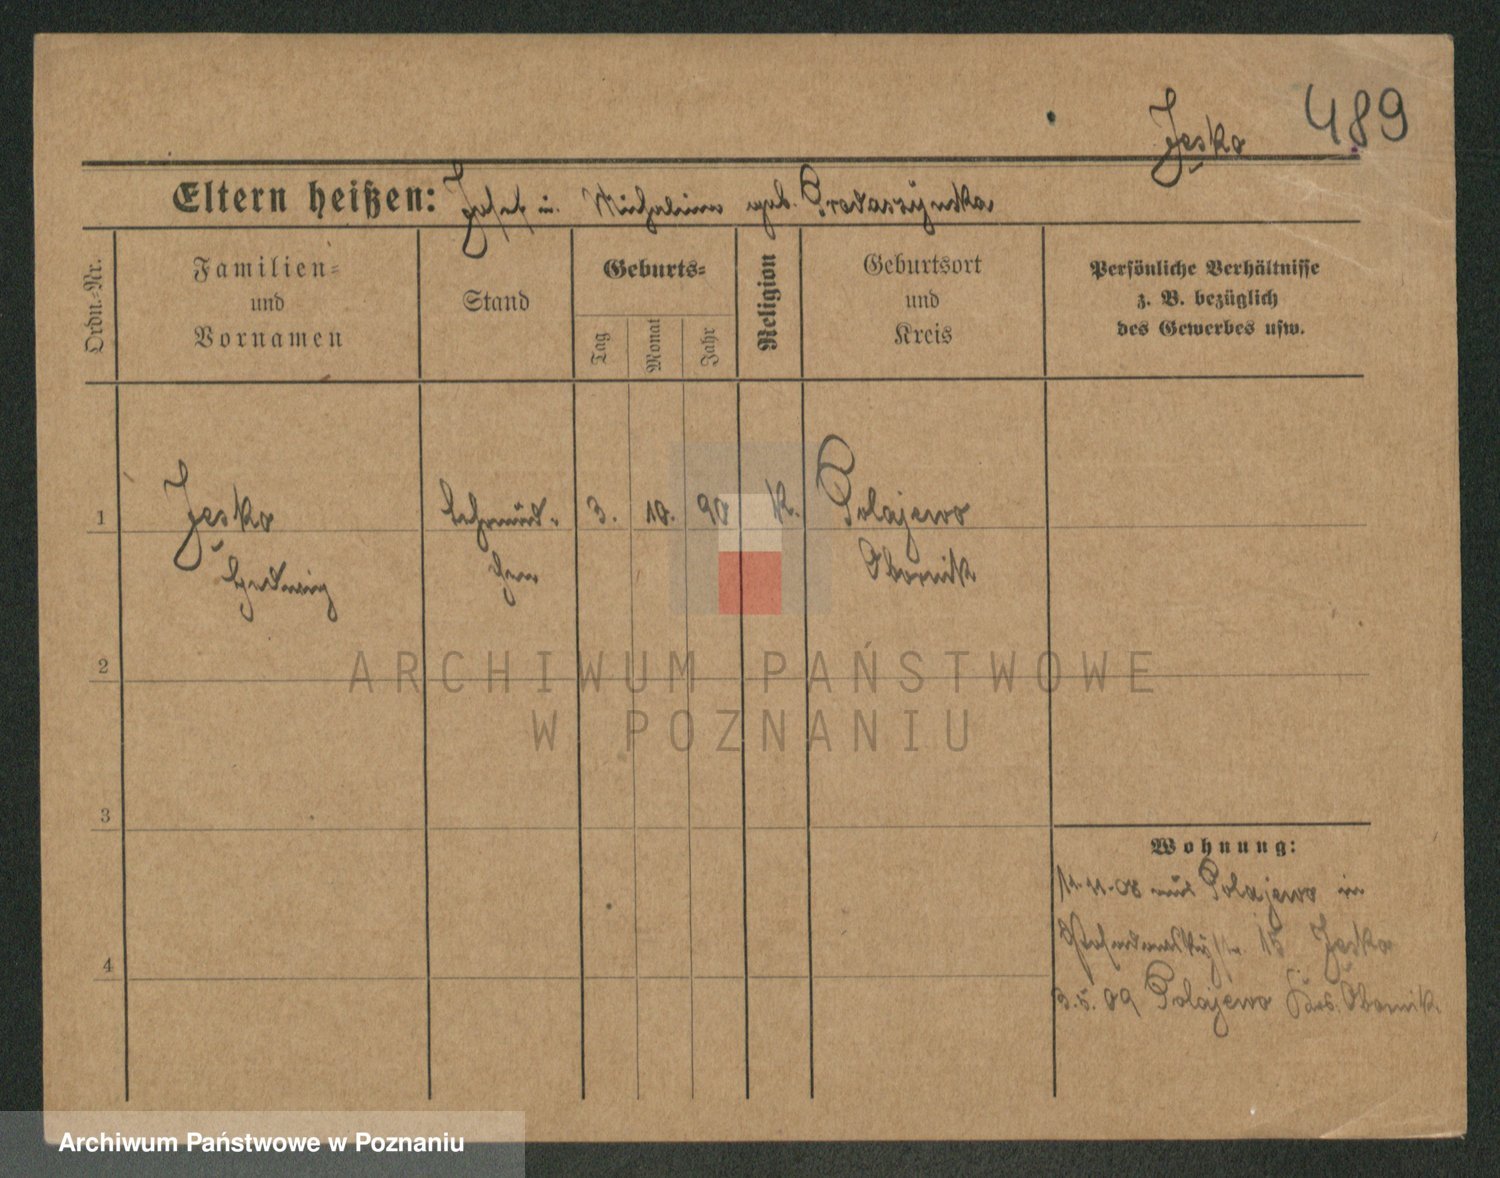 489
Jeska
Eltern heißen: Josef u. Michalina geb.
Ordn.-Nr.
Familien-
und
Vornamen
Stand
Geburts-
Tag
Monat
Jahr
Religion
Geburtsort
und
Kreis
Persönliche Verhältnisse
z. B. bezüglich
des Gewerbes usw.
1
Jeska
Hedwig
Lehrmäd-
chen
3.
10.
90
K.
Polajewo
Obornik
2
ARCHIWUM PAŃSTWOWE
W POZNANIU
3
Wohnung:
11.11.08 aus Polajewo in
15 Jeska
4
3.5.09 Polajewo Krs. Obornik.
Archiwum Państwowe w Poznaniu